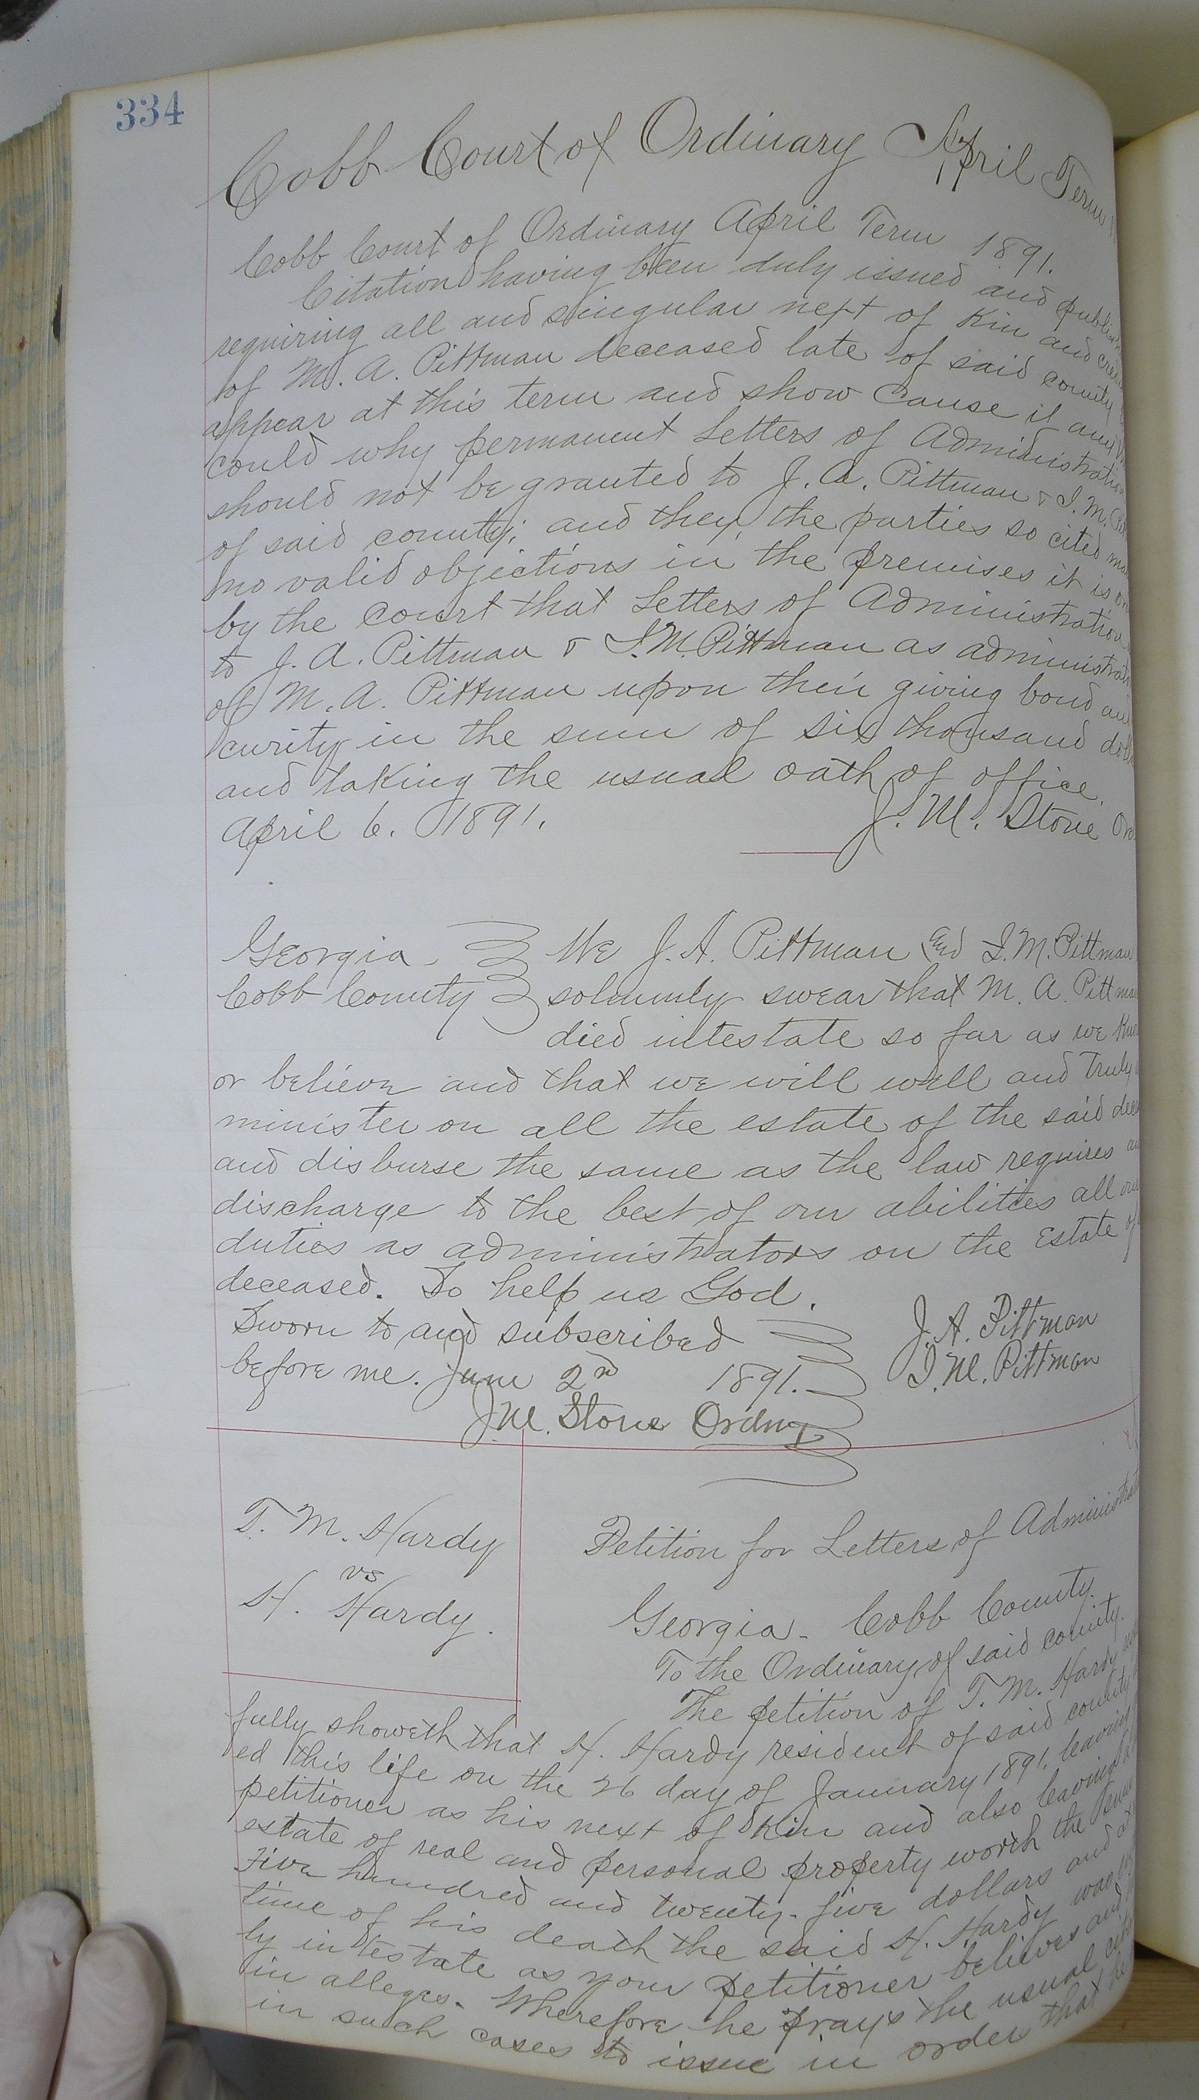 334
Cobb Court of Ordinary April Term
Cobb Court of Ordinary April Term 1891.
Citation having been duly issued and
requiring all and singular next of Kin and
of M. A. Pittman deceased late of said county
appear at this term and show Cause if any
could why permanent Letters of Administration
should not be granted to J. A. Pittman & I. M.
of said county; and they, the parties so cited
no valid objections in the premises it is
by the court that Letters of Administration
to J. A. Pittman & I. M. Pittman as
of M. A. Pittman upon their giving bond
curity in the sum of six thousand
and taking the usual oath of office.
April 6. 1891. J. M. Stone
Georgia We J. A. Pittman and I. M. Pittman
Cobb County solemnly swear that M. A.
died intestate so far as we
or believe and that we will well and truly
minister on all the estate of the said
and disburse the same as the law requires
discharge to the best of our abilities all
duties as administrators on the Estate
deceased. So help us God.
Sworn to and subscribed J. A. Pittman
before me. June 2nd 1891. I. M. Pittman
J. M. Stone Ordny
T. M. Hardy
vs
H. Hardy.
Petition for Letters of
Georgia. Cobb County.
To the Ordinary of said county.
The petition of T. M. Hardy
fully showeth that H. Hardy resident of said county
ed this life on the 26 day of January 1891. leaving
petitioner as his next of Kin and also leaving
estate of real and personal property worth the
Five hundred and twenty-five dollars and
time of his death the said H. Hardy
ly intestate as your petitioner believes and
in alleges. Wherefore he prays the usual
in such cases to issue in order that